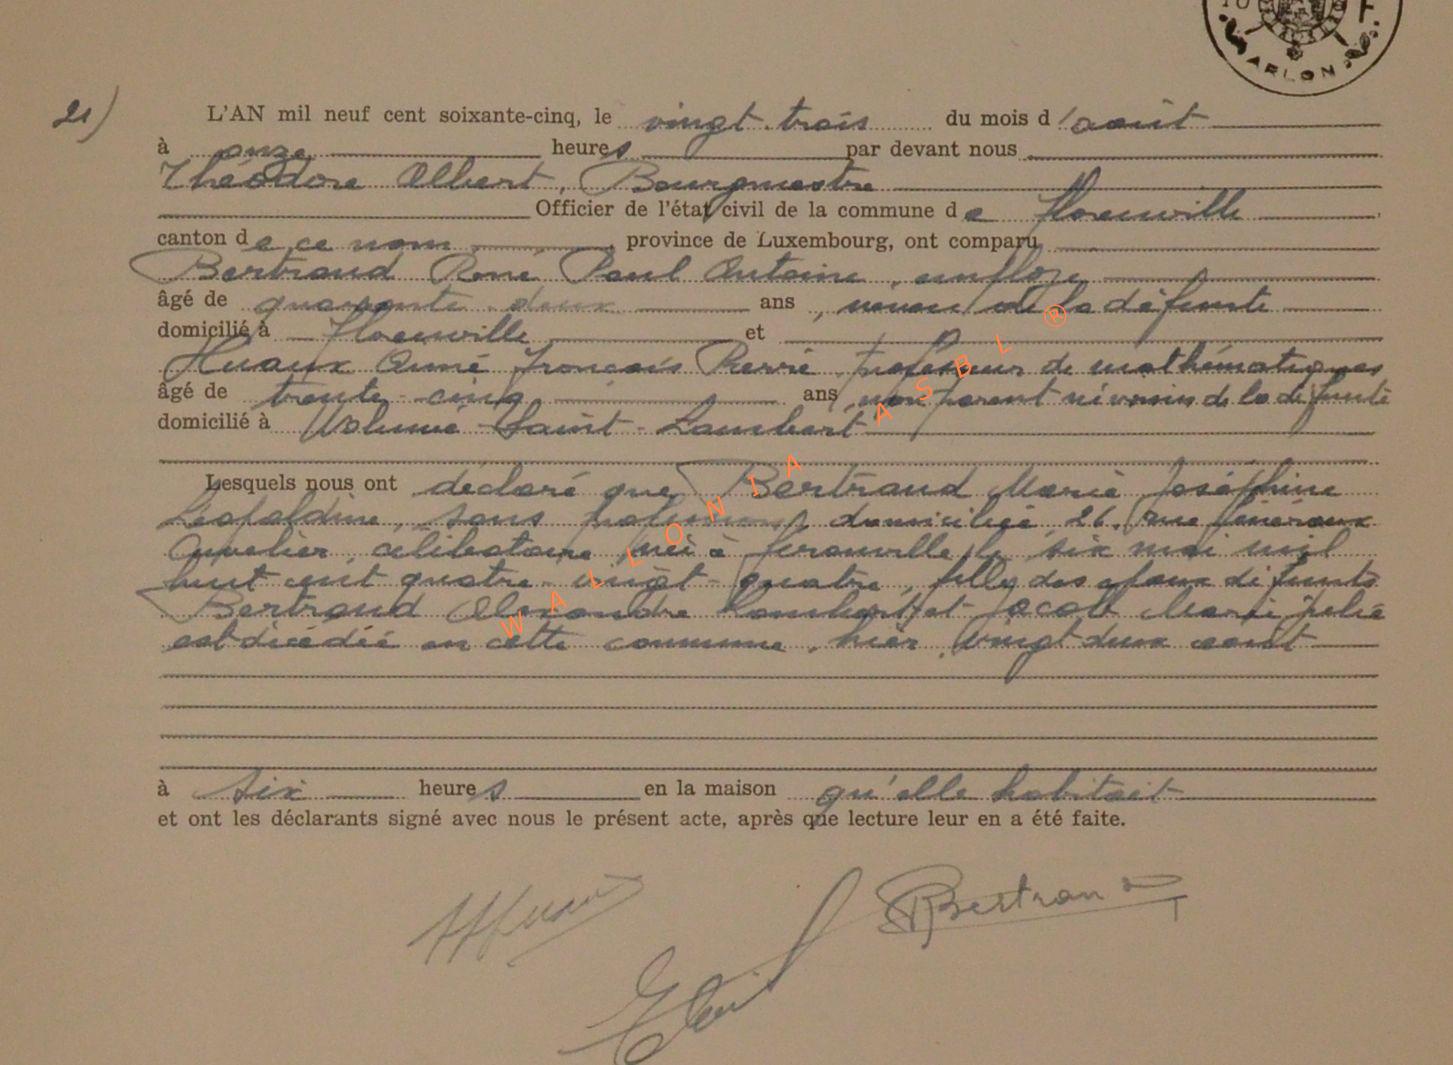 ARLON
21)
L'AN mil neuf cent soixante-cinq, le vingt trois du mois d'août
à onze heures par devant nous
Théodore Albert, Bourgmestre
Officier de l'état civil de la commune de Florenville
canton de ce nom, province de Luxembourg, ont comparu
Bertrand René Paul Antoine, employé
âgé de quarante deux ans, neveu de la défunte
domicilié à Florenville et
Huaux Aimé François Pierre, professeur de mathématiques
âgé de trente-cinq ans, non parent ni voisin de la défunte
domicilié à Woluwé-Saint-Lambert
Lesquels nous ont déclaré que Bertrand Marie Joséphine
Léopoldine, sans profession, domiciliée 26, rue Généraux
Cuvelier, célibataire, née à Florenville, le six mai mil
huit cent quatre-vingt-quatre, fille des époux défunts
Bertrand Alexandre Lambert et Jacob Marie Julie
est décédée en cette commune, hier, vingt deux août
à six heures en la maison qu'elle habitait
et ont les déclarants signé avec nous le présent acte, après que lecture leur en a été faite.
AHuaux
RBertrand
WALLONIA ASBL ®